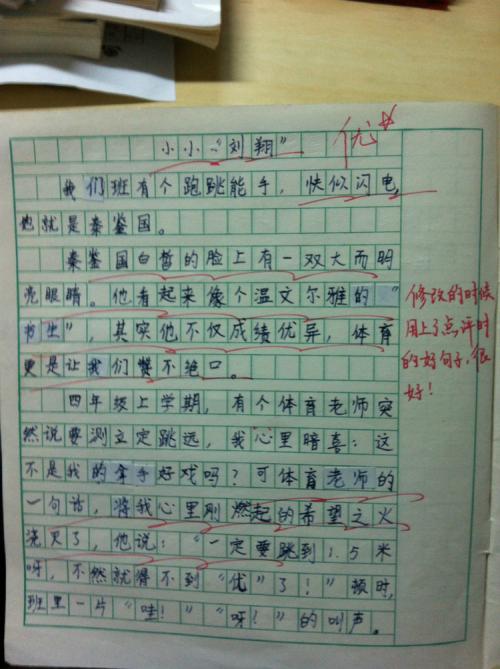 小小“刘翔”
优☆
我们班有个跑跳能手，快似闪电，
他就是秦鉴国。
秦鉴国白皙的脸上有一双大而明
亮眼睛。他看起来像个温文尔雅的“
书生”，其实他不仅成绩优异，体育
更是让我们赞不绝口。
四年级上学期，有个体育老师突
然说要测立定跳远，我心里暗喜：这
不是我的拿手好戏吗？可体育老师的
一句话，将我心里刚燃起的希望之火
浇灭了，他说：“一定要跳到1.5米
呀，不然就得不到“优”了！”顿时，
班里一片“哇！”“呀！”的叫声。
修改的时候
用上了点评时
的好句子，很
好！